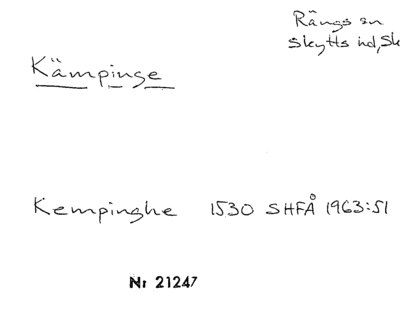 Rängs sn
Skytts hd, Sk
Kämpinge
Kempinghe 1530 SHFÅ 1963:51
Nr 21247